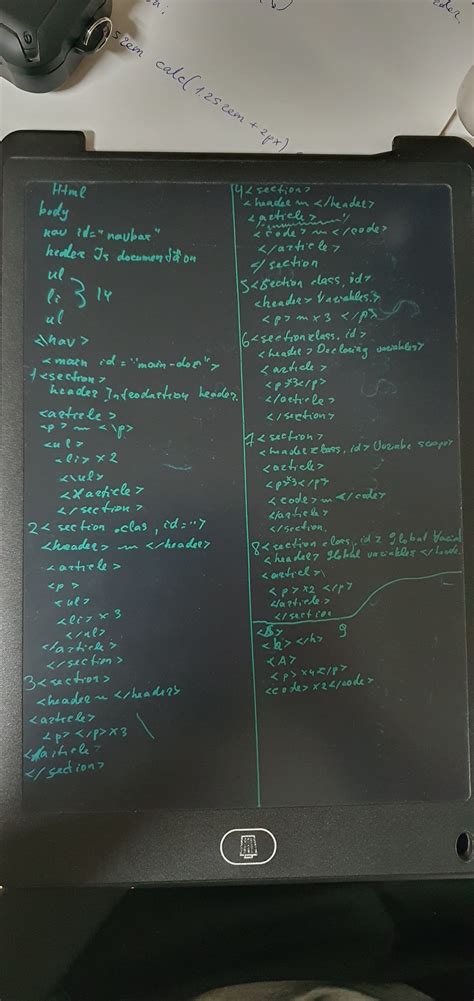 szem calc(1.25rem + 2px)
Html
body
nav id="navbar"
header Js documentation
ul
li } 14
ul
<\nav>
<main id="main-doc">
1<section>
header Introduction header
<article>
<p> m <\p>
<ul>
<li> x2
<\ul>
</article>
</section>
2<section .clas, id="">
<header> m </header>
<article>
<p>
<ul>
<li> x 3
</ul>
</article>
</section>
3<section>
<header m </header>
<article>
<p> </p> x3
</article>
</section>
4<section>
<header m </header>
<article>
<code> m </code>
</article>
</section
5<section class, id>
<header> Variables>
<p> m x3 </p>
6<section class, id>
<header> Declaring variables>
<article>
<p x3 </p>
</article>
</section>
7<section>
<header class, id> Variabe scope>
<article>
<p x3 </p>
<code> m </code>
</article>
</section.
8<section class, id> Global
<header> Global variables </heade
<articl\
<p> x2 </p>
</article>
</section
9
<h> </h>
<A>
<p> x4 </p>
<code> x2 </code>